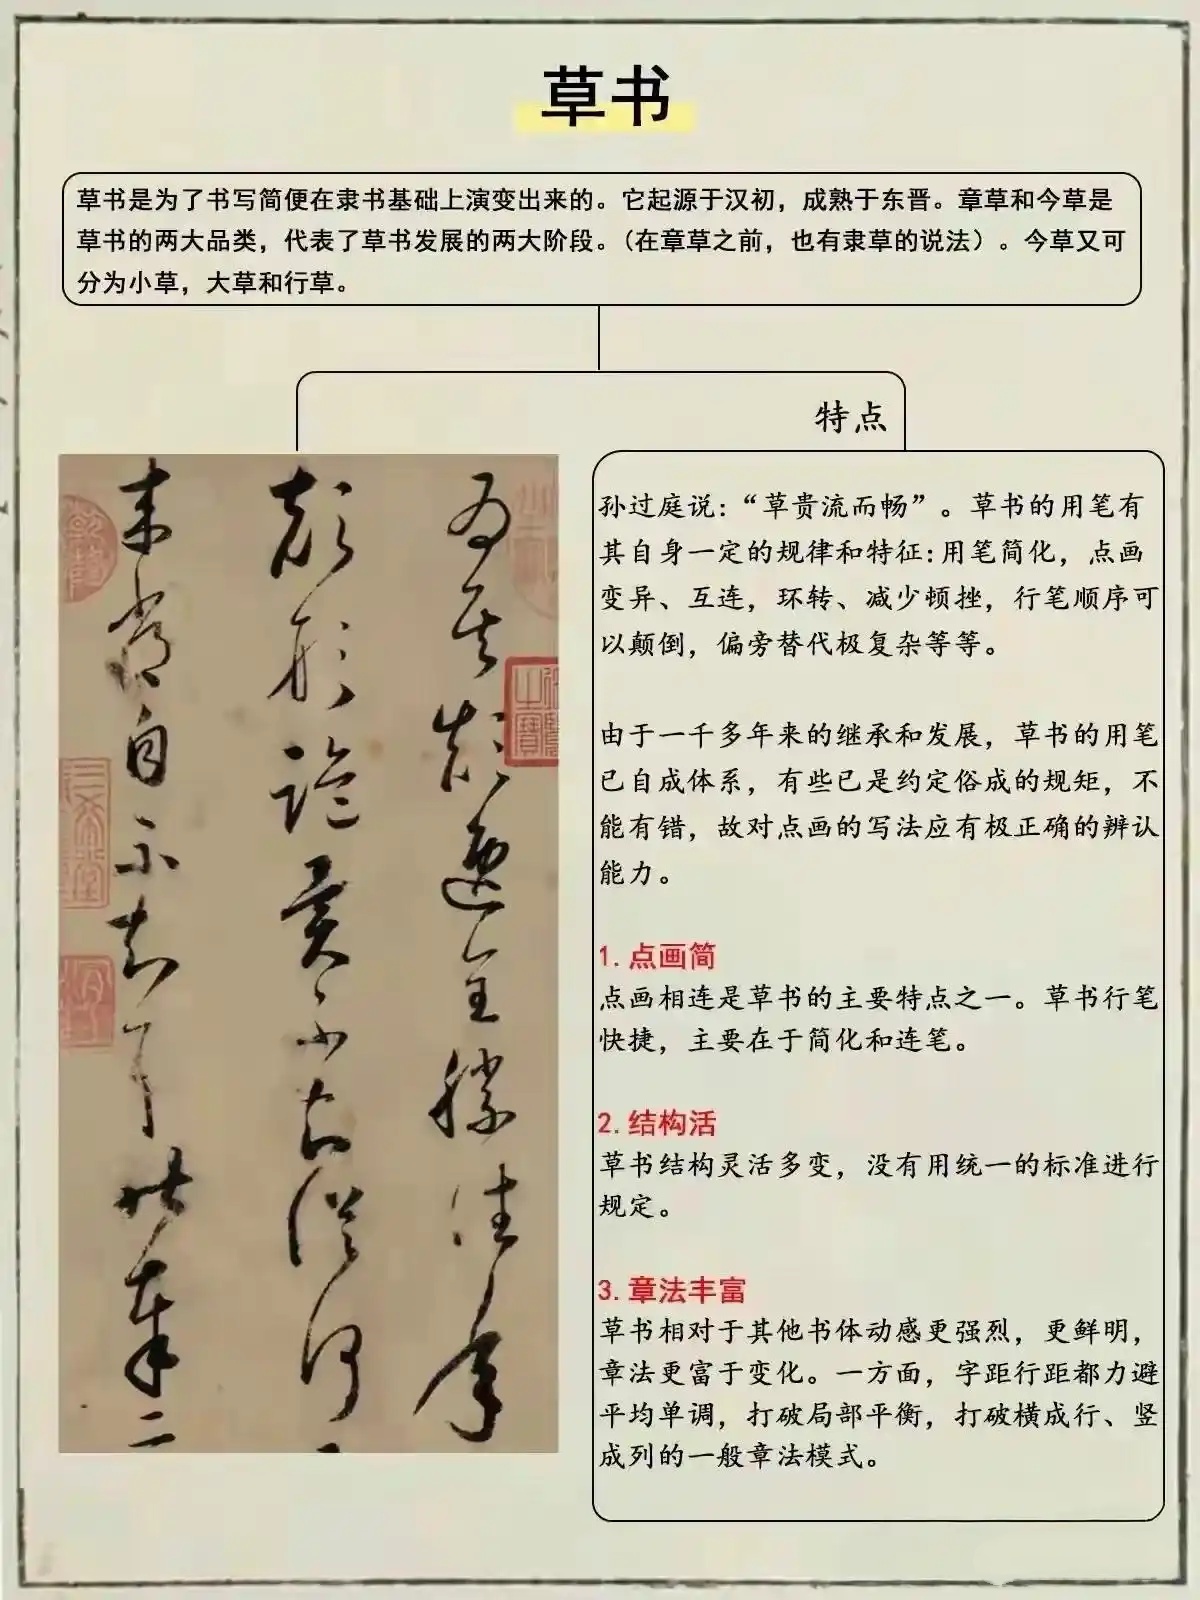 草书
草书是为了书写简便在隶书基础上演变出来的。它起源于汉初，成熟于东晋。章草和今草是
草书的两大品类，代表了草书发展的两大阶段。（在章草之前，也有隶草的说法）。今草又可
分为小草，大草和行草。
特点
孙过庭说：“草贵流而畅”。草书的用笔有
其自身一定的规律和特征：用笔简化，点画
变异、互连，环转、减少顿挫，行笔顺序可
以颠倒，偏旁替代极复杂等等。
由于一千多年来的继承和发展，草书的用笔
已自成体系，有些已是约定俗成的规矩，不
能有错，故对点画的写法应有极正确的辨认
能力。
1.点画简
点画相连是草书的主要特点之一。草书行笔
快捷，主要在于简化和连笔。
2.结构活
草书结构灵活多变，没有用统一的标准进行
规定。
3.章法丰富
草书相对于其他书体动感更强烈，更鲜明，
章法更富于变化。一方面，字距行距都力避
平均单调，打破局部平衡，打破横成行、竖
成列的一般章法模式。